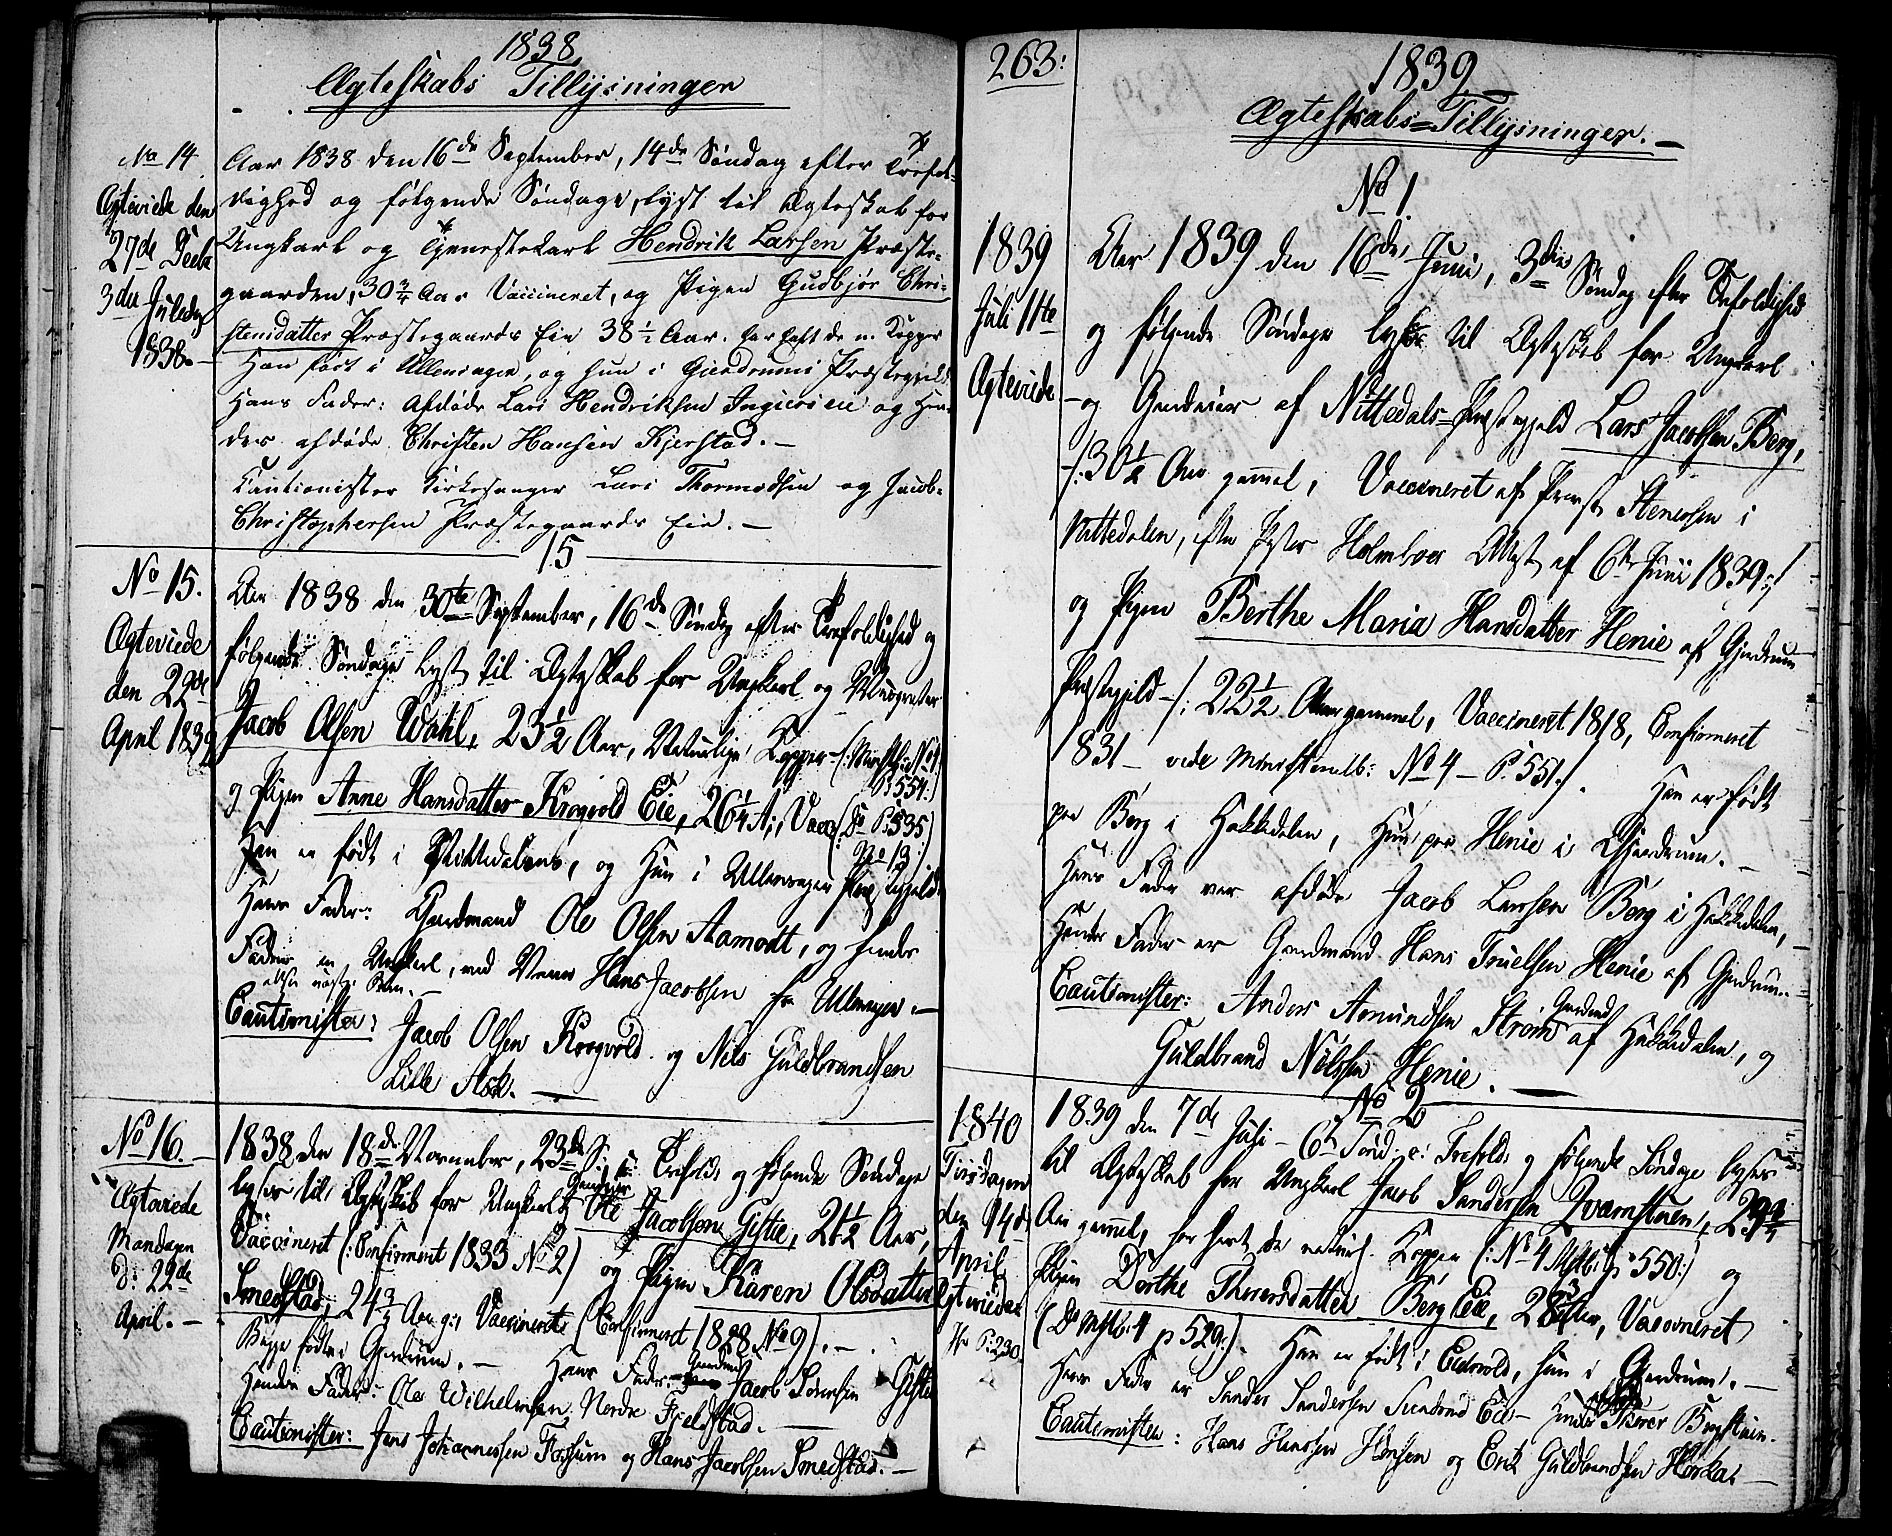 1838
Ægteskabs Tillysninger
No 14.
Ægteviede den
27de Decbr
3die Juledag
1838.
Aar 1838 den 16de September, 14de Søndag efter Trefol-
dighed og følgende Søndage, lyst til Ægteskab for
Ungkarl og Tjenestekarl Hendrik Larsen Præste-
gaarden, 30 3/4 Aar Vaccineret, og Pigen Gudbjør Chri-
stensdatter Præstegaards Eie 38 1/2 Aar. har haft de n. Kopper
Han født i Ullensager, og hun i Gjerdrums Præstegjeld
Hans Fader: Afdøde Lars Hendriksen og Hen-
des afdøde Christen Hansen Kjerstad.-
Cautionister Kirkesanger Lars Thormodsen og Jacob
Christophersen Præstegaards Eie.-
15
No 15.
Ægteviede
den 22de
April 1839
Aar 1838 den 30te September, 16de Søndag efter Trefoldighed og
følgende Søndage lyst til Ægteskab for Ungkarl og
Jacob Olsen Wahl, 23 1/2 Aar, Naturlige Kopper (: No 4
P: 554:)
og Pigen Anne Hansdatter Krogvold Eie, 26 1/4 A:, Vacc: (Do P: 535
No 13:)
Han er født i Nittedalens, og Hun i Ullensager Præstegjeld
Hans Fader: Gaardmand Ole Olsen Aamodt, og hendes
Fader en Ungkarl, ved Navn Hans Jacobsen fra Ullensager.-
Cautionister: Jacob Olsen Krogvold og Nils Guldbrandsen
Lille Ask.-
No 16.-
Ægteviede
Mandagen
d: 22de
April.-
1838 den 18de November, 23de S: e: Trefold: og følgende Søndage
lyses til Ægteskab for Ungkarl Ole Jacobsen Gistie, 21 1/2 Aar,
Vaccineret (: Confirmeret 1833 No 2) og Pigen Karen Olsdatter
Smedstad, 24 3/4 Aar g:, Vaccineret (Confirmeret 1828 No 9).-
Begge fødte i Gjerdrum.- Hans Fader: Gaardmd Jacob Sørensen Gistie
Hendes Fader: Ole Wilhelmsen Nerdre Fjeldstad.-
Cautionister: Jens Johannessen Fossum og Hans Jacobsen Smedstad.-
263:
1839
Ægteskabs=Tillysninger.-
No 1.
1839
Juli 11te
Ægteviede
Aar 1839 den 16de Juni, 3die Søndag efter Trefoldighed
og følgende Søndage lyst til Ægteskab for Ungkarl
og Gaardeier af Nittedals=Præstegjeld Lars Jacobsen Berg,
/: 30 1/2 Aar gammel, Vaccineret af Præst Stenersen i
Nittedalen, efter Holmboes Attest af 6te Juni 1839:/
og Pigen Berthe Maria Hansdatter Henie af Gjerdrum
Præstegjeld /: 22 1/2 Aar gammel, Vaccineret 1818, Confirmeret
1831 - vide Ministerialb: No 4 - P. 551:/. Han er født
paa Berg i Hakkedalen, Hun paa Henie i Gjerdrum.-
Hans Fader var afdøde Jacob Larssen Berg i Hakkedalen,
Hendes Fader er Gaardmand Hans Truelsen Henie af Gjerdrum.
Cautionister: Anders Amundsen Strøm af Hakkedalen, og
Guldbrand Nilssen Henie.-
No 2
1840
Tirsdagen
den 14de
April
Ægteviede
P: 230.
1839 den 7de Juli - 6te Sønd: e: Trefold: og følgende Søndage lyses
til Ægteskab for Ungkarl Jacob Sandersen Qvarnstuen, 29 3/4
Aar gammel, har havt de naturl: Kopper (: No 4 Mstb: p: 550:) og
Pigen Dorthe Thorersdatter Berg Eie, 28 Aar, Vaccineret
(Do Mstb: 4 p 529:). Han er født i Eidsvold, hun i Gjerdrum.-
Hans Fader er Sander Sandersen Sundrud Eie - Hendes Thorer Bergstuen.
Cautionister: Hans Hansen Hønsen og Erik Guldbrandsen Hørkas